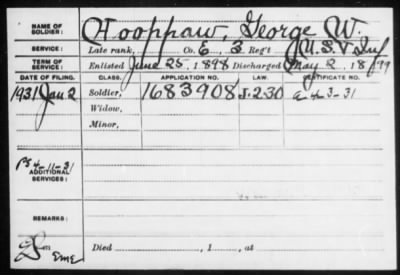 NAME OF SOLDIER: Hooppaw, George W.
SERVICE: Late rank, Co. E, 3 Reg't U.S.V. Inf
TERM OF SERVICE: Enlisted June 25, 1898 Discharged May 2, 1899
DATE OF FILING. CLASS. APPLICATION NO. LAW. CERTIFICATE NO.
1931 Jan 2 Soldier, 1683908 J.2-30 a 4-3-31
Widow,
Minor,
4-11-31
ADDITIONAL SERVICES:
REMARKS:
Died , 1 , at